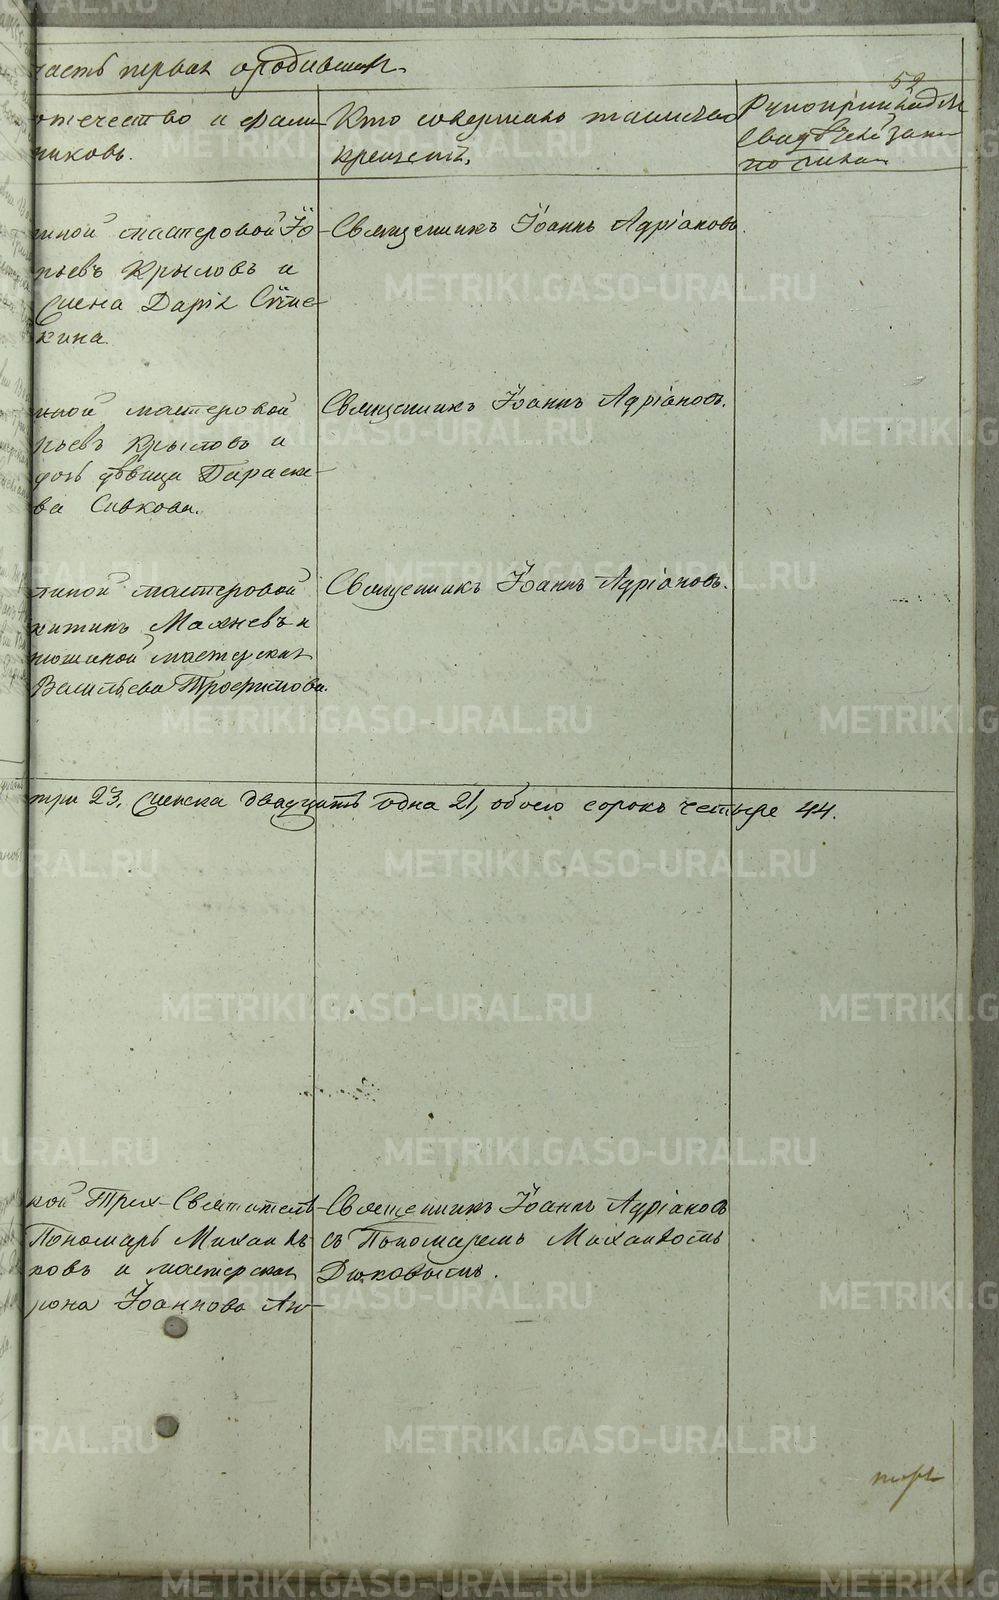 часть первая о родившихся.
52
отечество и фами-
никовъ.
Кто совершалъ таинство
крещенія.
Рукоприкладств
свидѣтелей
по
шной мастеровой
ньевъ Крыловъ и
жена Дарія
кина.
Священникъ Іоаннъ Адріановъ.
шной мастеровой
ньевъ Крыловъ и
дѣвица Параске-
ва Сивкова.
Священникъ Іоаннъ Адріановъ.
шной мастеровой
Махневъ и
мастерская
Васильева Трофимова.
Священникъ Іоаннъ Адріановъ.
три 23, женска двадцать одна 21, обоего сорокъ четыре 44.
кой Трех-Святитель-
Пономарь Михаилъ
ковъ и мастерская
Іоаннова
Священникъ Іоаннъ Адріановъ
съ Пономаремъ Михаиломъ
Дюковымъ.
METRIKI.GASO-URAL.RU